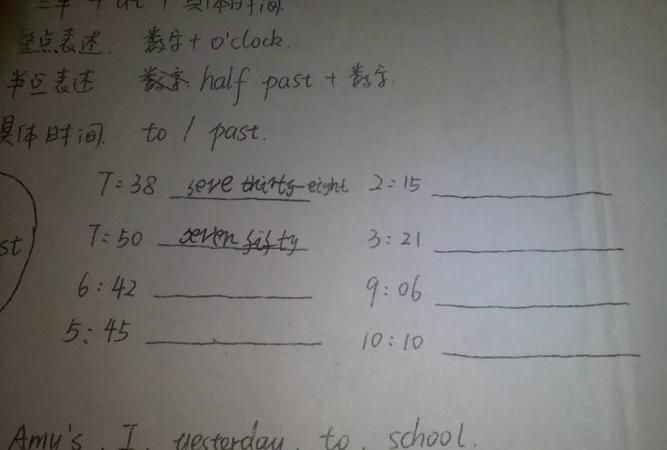 具体时间
整点表述. 数字 + o'clock.
半点表述 数字 half past + 数字.
具体时间. to / past.
7:38 seve thirty-eight 2:15
st 7:50 seven fifty 3:21
6:42 9:06
5:45 10:10
Amy's, I, yesterday, to, school.